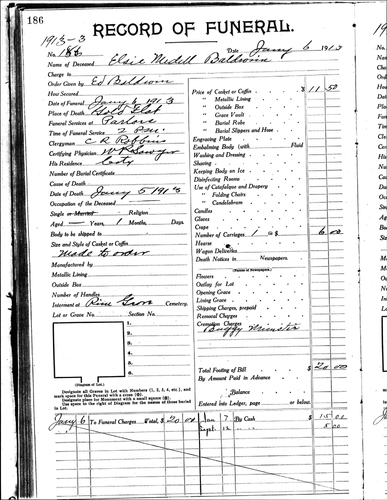 186
RECORD OF FUNERAL.
1913-3
No. 186 Date Jany 6 1913
Name of Deceased Elsie Medell Baldwin
Charge to
Order Given by Ed Baldwin
How Secured
Date of Funeral Jany 6 1913
Place of Death
Funeral Services at Parlors
Time of Funeral Service 2 P.M.
Clergyman C R Robbins
Certifying Physician W P Sawyer
His Residence City
Number of Burial Certificate
Cause of Death
Date of Death Jany 5 1913
Occupation of the Deceased
Single or Married Religion
Aged — Years, 1 Months, Days.
Body to be shipped to
Size and Style of Casket or Coffin
Made to order
Manufactured by
Metallic Lining
Outside Box
Number of Handles
Interment at Pine Grove Cemetery.
Lot or Grave No. Section No.
1.
2.
3.
4.
5.
6.
(Diagram of Lot.)
Designate all Graves in Lot with Numbers (1, 2, 3, 4, etc.), and mark this for Funeral with a cross
Designate place for Monument with a small square
Use space to the right of Diagram for the names of those buried in Lot.
Price of Casket or Coffin $ 11 50
" Metallic Lining
" Outside Box
" Grave Vault
" Burial Robe
" Burial Slippers and Hose
Engraving Plate
Embalming Body (with Fluid
Washing and Dressing
Shaving
Keeping Body on Ice
Disinfecting Rooms
Use of Catafalque and Drapery
" Folding Chairs
" Candelabrum
Candles
Gloves
Crape
Number of Carriages 1 @ $ 6 00
Hearse
Wagon Deliveries
Death Notices in Newspapers.
(Names of Newspapers)
Flowers
Outlay for Lot
Opening Grave
Lining Grave
Shipping Charges, prepaid
Removal Charges
Cremation Charges
Buggy Minister
Total Footing of Bill $ 20 00
By Amount Paid in Advance
Balance
Entered into Ledger, page or below.
Jany 6 To Funeral Charges Total, $ 20 00 Jan 7 By Cash $ 15 00
Sept. 12 " " 5 00